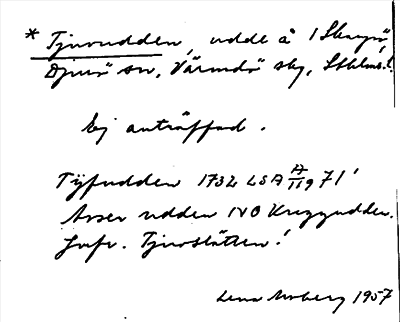 * Tjuvudden, udde å 1 Skarpö,
Djurö sn, Värmdö skg, Sthlms l.
Ej anträffad.
Tÿfudden 1732 LSA A 119 71!
Avser udden NO Kryggudden.
Jmfr. Tjuvslätten!
Lena Moberg 1957